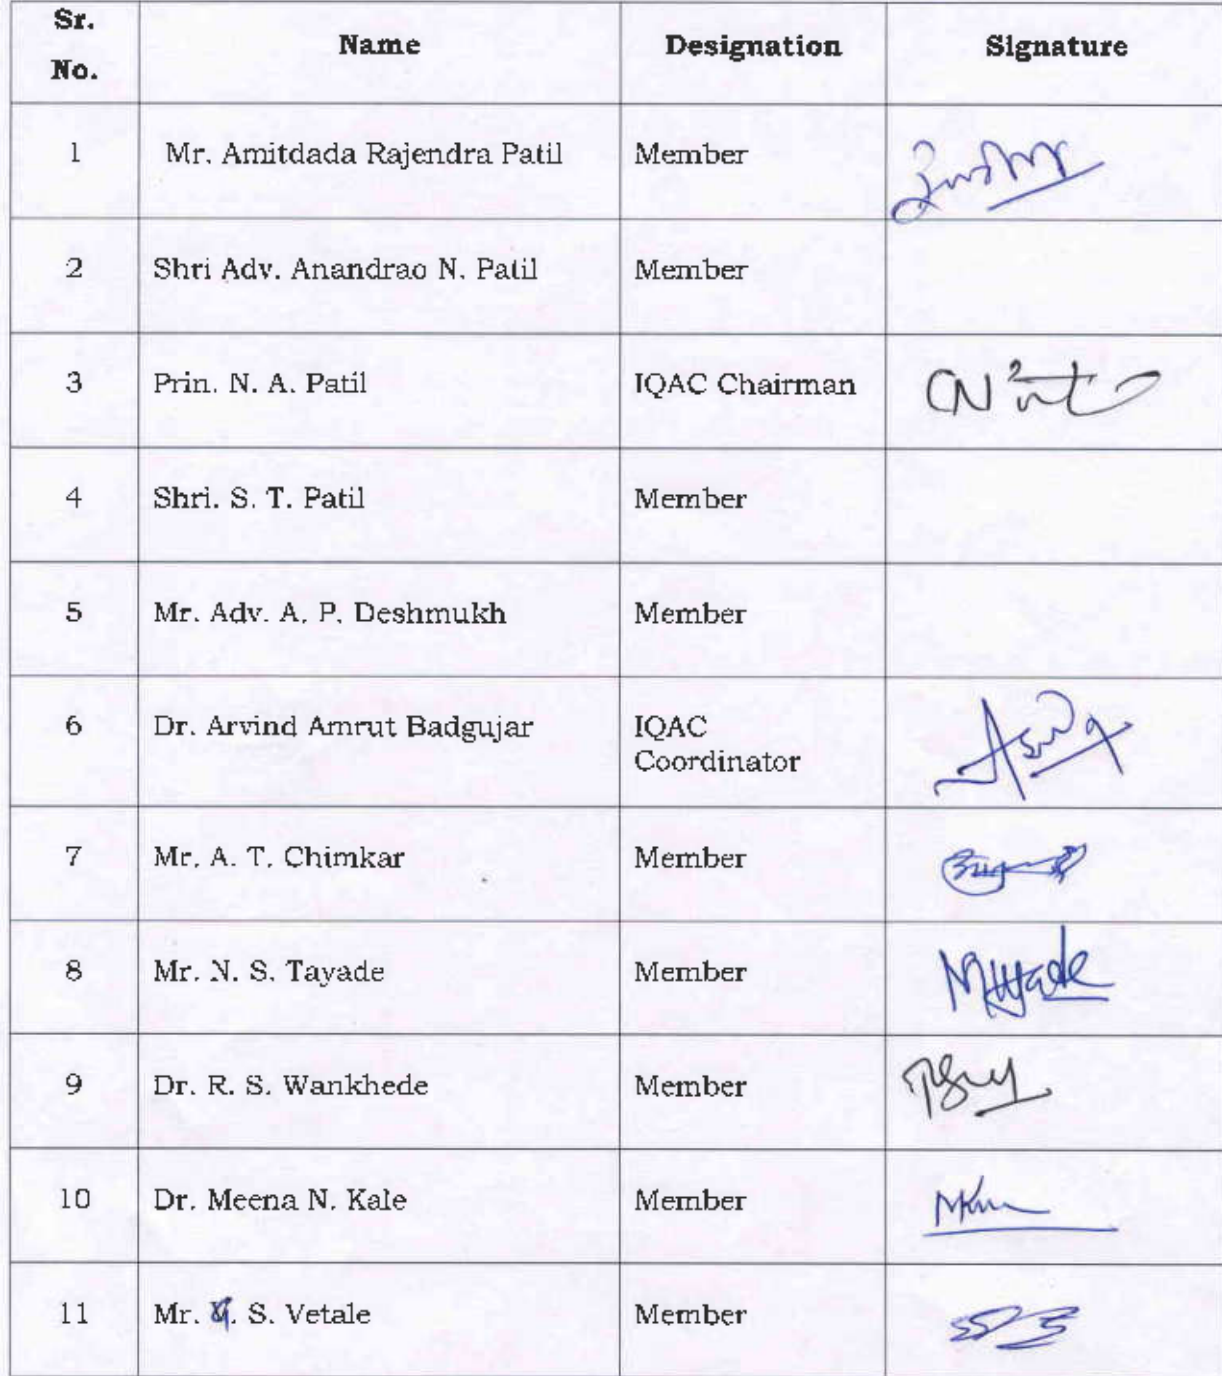 Sr.
No.
Name
Designation
Signature
1
Mr. Amitdada Rajendra Patil
Member
2
Shri Adv. Anandrao N. Patil
Member
3
Prin. N. A. Patil
IQAC Chairman
4
Shri. S. T. Patil
Member
5
Mr. Adv. A. P. Deshmukh
Member
6
Dr. Arvind Amrut Badgujar
IQAC
Coordinator
7
Mr. A. T. Chimkar
Member
8
Mr. N. S. Tayade
Member
9
Dr. R. S. Wankhede
Member
10
Dr. Meena N. Kale
Member
11
Mr. S. Vetale
Member